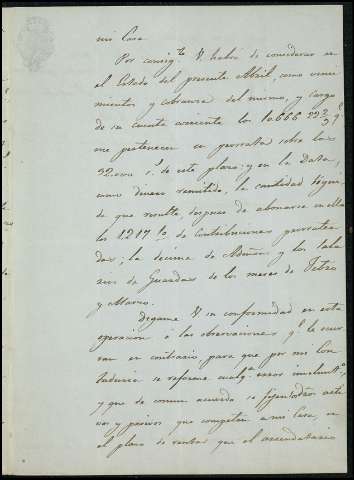 mi Casa.
Por consigte V. habrá de considerar en
el Estado del presente Abril, como venci
miento y cobranza del mismo, y cargo
de su cuenta corriente los 10.666 22 2/3 qe
me pertenecen en prorrata sobre los
32.000 rs. de este plazo; y en la Data,
como dinero remitido, la cantidad líqui
da que resulte, despues de abonarse en ella
los 1.217 rs. de contribuciones prorratea
das; la décima de Admon y los sala
rios de Guardas de los meses de Febro
y Marzo.
Dígame V. su conformidad en esta
operacion ó las observaciones qe le ocur
ran en contrario, para que por mi Con
taduría se reforme cualqa error involunto,
y que de comun acuerdo se fijen todos acti
vos y pasivos que competen a mi Casa, en
el plazo de rentas que el arrendatario